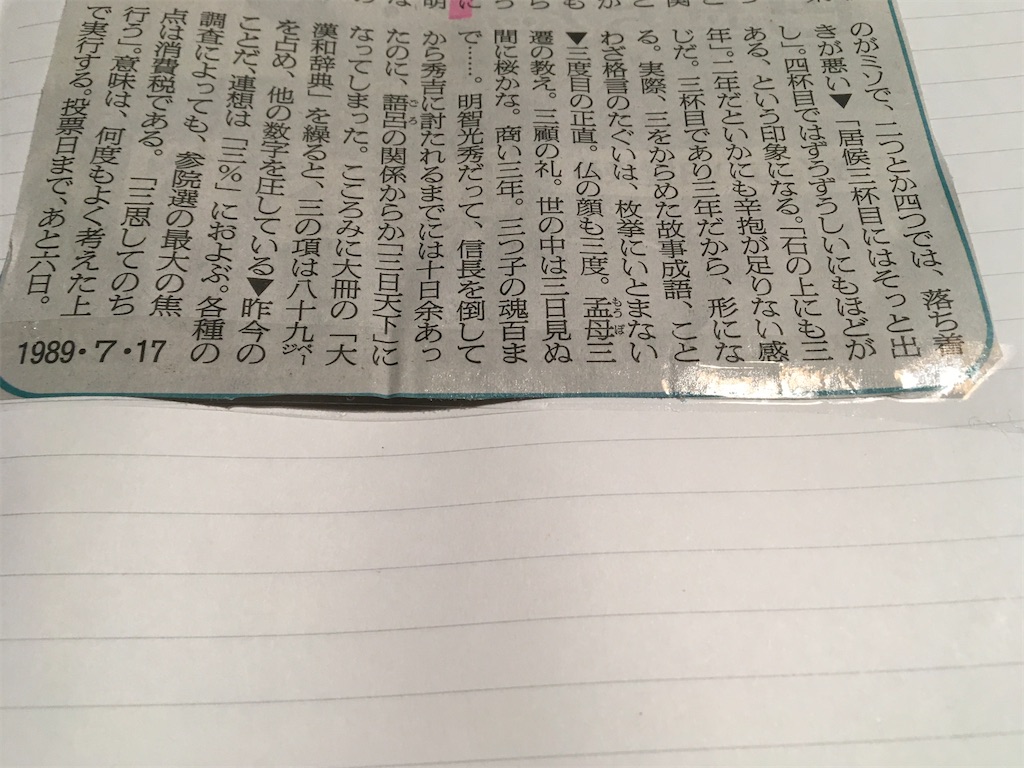 のがミソで、二つとか四つでは、落ち着
きが悪い▼「居候三杯目にはそっと出
し」。四杯目ではずうずうしいにもほどが
ある、という印象になる。「石の上にも三
年」。二年だといかにも辛抱が足りない感
じだ。三杯目であり三年だから、形にな
る。実際、三をからめた故事成語、こと
わざ格言のたぐいは、枚挙にいとまない
▼三度目の正直。仏の顔も三度。孟母三
遷の教え。三顧の礼。世の中は三日見ぬ
間に桜かな。商い三年。三つ子の魂百ま
で……。明智光秀だって、信長を倒して
から秀吉に討たれるまでには十日余あっ
たのに、語呂の関係からか「三日天下」に
なってしまった。こころみに大冊の「大
漢和辞典」を繰ると、三の項は八十九ページ
を占め、他の数字を圧している▼昨今の
ことだ、連想は「三%」におよぶ。各種の
調査によっても、参院選の最大の焦
点は消費税である。　「三思してのち
行う」。意味は、何度もよく考えた上
で実行する。投票日まで、あと六日。
1989・7・17